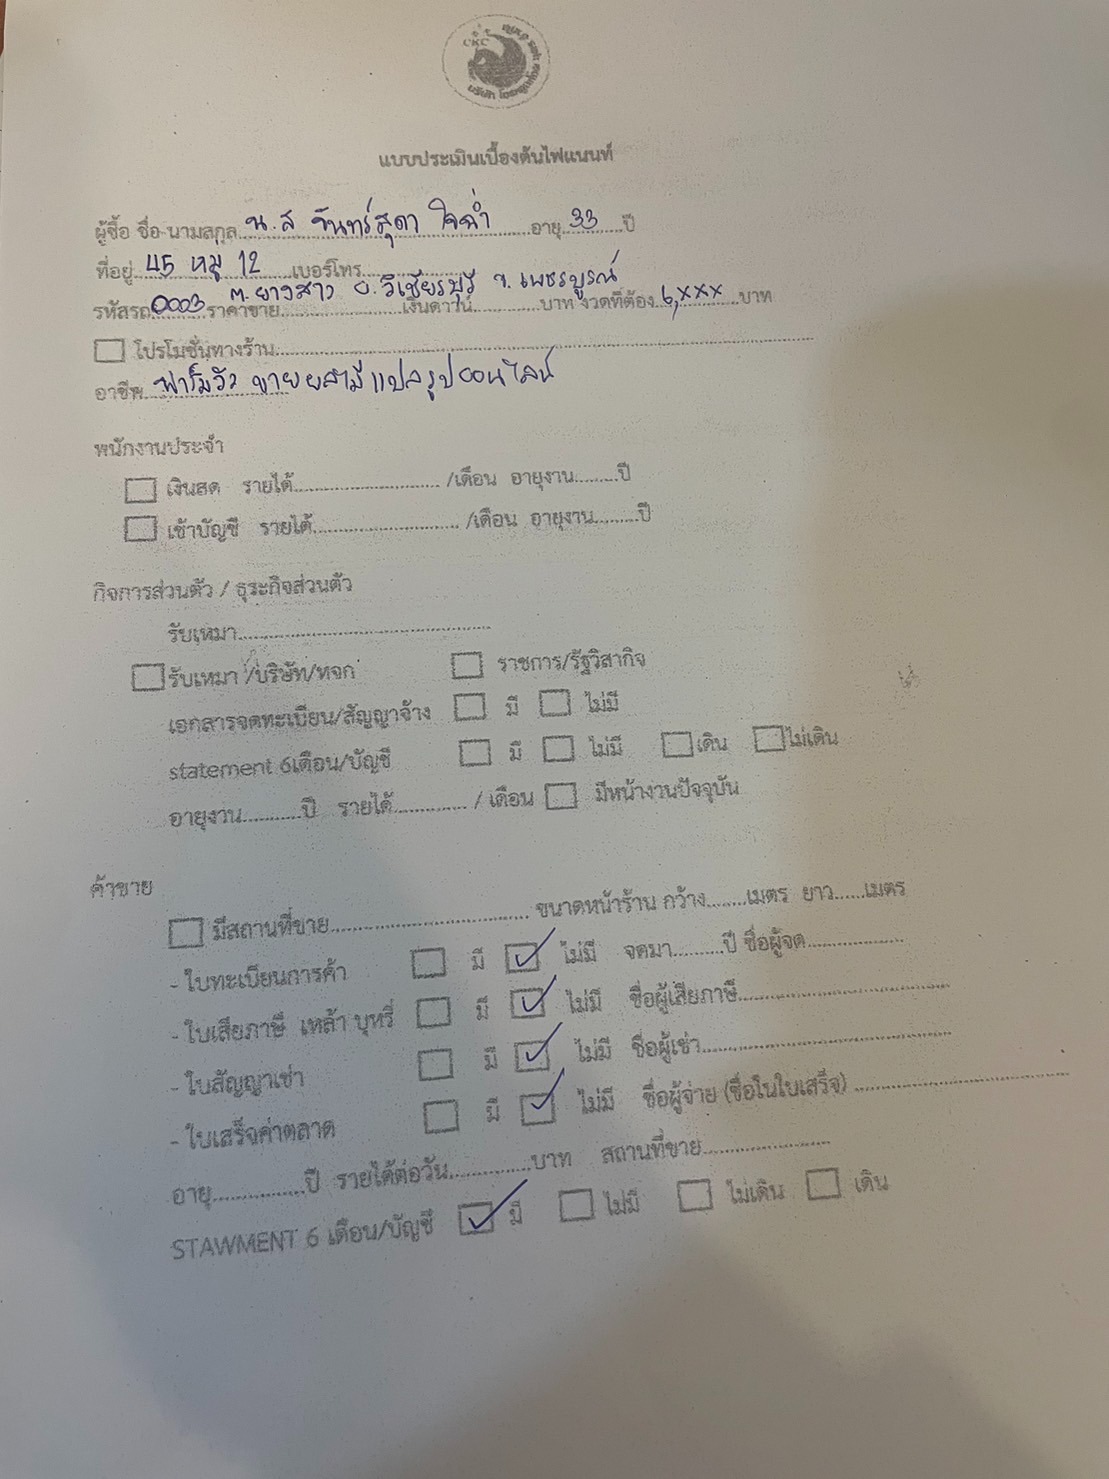 CKC
แบบประเมินเบื้องต้นไฟแนนท์
ผู้ซื้อ ชื่อ-นามสกุล น.ส จันทร์สุดา ใจฉ่ำ อายุ 33 ปี
ที่อยู่ 45 หมู่ 12 เบอร์โทร
ต.ยางสาว อ.วิเชียรบุรี จ.เพชรบูรณ์
รหัสรถ 0003 ราคาขาย เงินดาวน์ บาท งวดที่ต้อง 6,xxx บาท
โปรโมชั่นทางร้าน
อาชีพ ฟาร์มวัว ขาย แปลรูปออนไลน์
พนักงานประจำ
เงินสด รายได้ /เดือน อายุงาน ปี
เข้าบัญชี รายได้ /เดือน อายุงาน ปี
กิจการส่วนตัว / ธุระกิจส่วนตัว
รับเหมา
รับเหมา /บริษัท/หจก ราชการ/รัฐวิสากิจ
เอกสารจดทะเบียน/สัญญาจ้าง มี ไม่มี
statement 6เดือน/บัญชี มี ไม่มี เดิน ไม่เดิน
อายุงาน ปี รายได้ / เดือน มีหน้างานปัจจุบัน
ค้าขาย
มีสถานที่ขาย ขนาดหน้าร้าน กว้าง เมตร ยาว เมตร
- ใบทะเบียนการค้า มี ✓ ไม่มี จดมา ปี ชื่อผู้จด
- ใบเสียภาษี เหล้า บุหรี่ มี ✓ ไม่มี ชื่อผู้เสียภาษี
- ใบสัญญาเช่า มี ✓ ไม่มี ชื่อผู้เช่า
- ใบเสร็จค่าตลาด มี ✓ ไม่มี ชื่อผู้จ่าย (ชื่อในใบเสร็จ)
อายุ ปี รายได้ต่อวัน บาท สถานที่ขาย
STAWMENT 6 เดือน/บัญชี ✓ มี ไม่มี ไม่เดิน เดิน